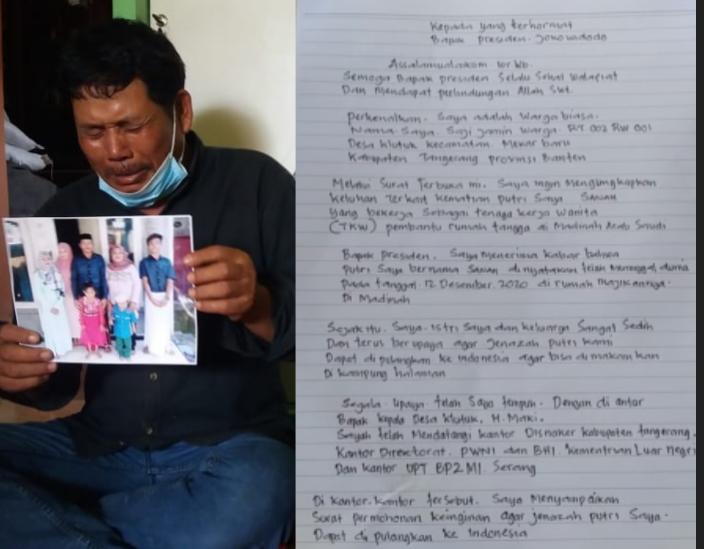 Kepada yang terhormat
Bapak presiden. Jokowidodo
Assalamualaikom wr.wb.
Semoga Bapak presiden Selalu Sehat walafiat
Dan mendapat perlindungan Allah Swt.
perkenalkan. Saya adalah warga biasa.
Nama saya. Saji Jamin warga. RT 002 RW 001
Desa klutuk kecamatan. Mekar baru
Kabupaten Tangerang provinsi Banten
Melalui Surat Terbuka ini. Saya ingin Mengungkapkan
keluhan Terkait kematian putri Saya Sanah
Yang bekerja Sebagai tenaga kerja wanita
(TKW) pembantu rumah tangga di Madinah Arab Saudi
Bapak presiden. Saya Menerima kabar bahwa
putri Saya bernama Sanah dinyatakan telah Meninggal dunia
pada tanggal. 12 Desember. 2020 di rumah Majikannya.
Di Madinah
Sejak itu. Saya. istri saya dan keluarga Sangat Sedih
Dan terus berupaya agar jenazah putri kami
Dapat di pulangkan ke Indonesia agar bisa di makamkan
Di kampung halaman
Segala upaya telah Saya tempuh. Dengan di antar
Bapak kepala Desa klutuk. H. Maki.
Saya telah Mendatangi kantor Disnaker kabupaten tangerang.
Kantor Direktorat. PWNI dan BHI. kementrian Luar Negri
Dan kantor UPT BP2MI Serang
Di kantor-kantor tersebut. Saya Menyampaikan
Surat permohonan keinginan agar jenazah putri Saya.
Dapat di pulangkan ke Indonesia